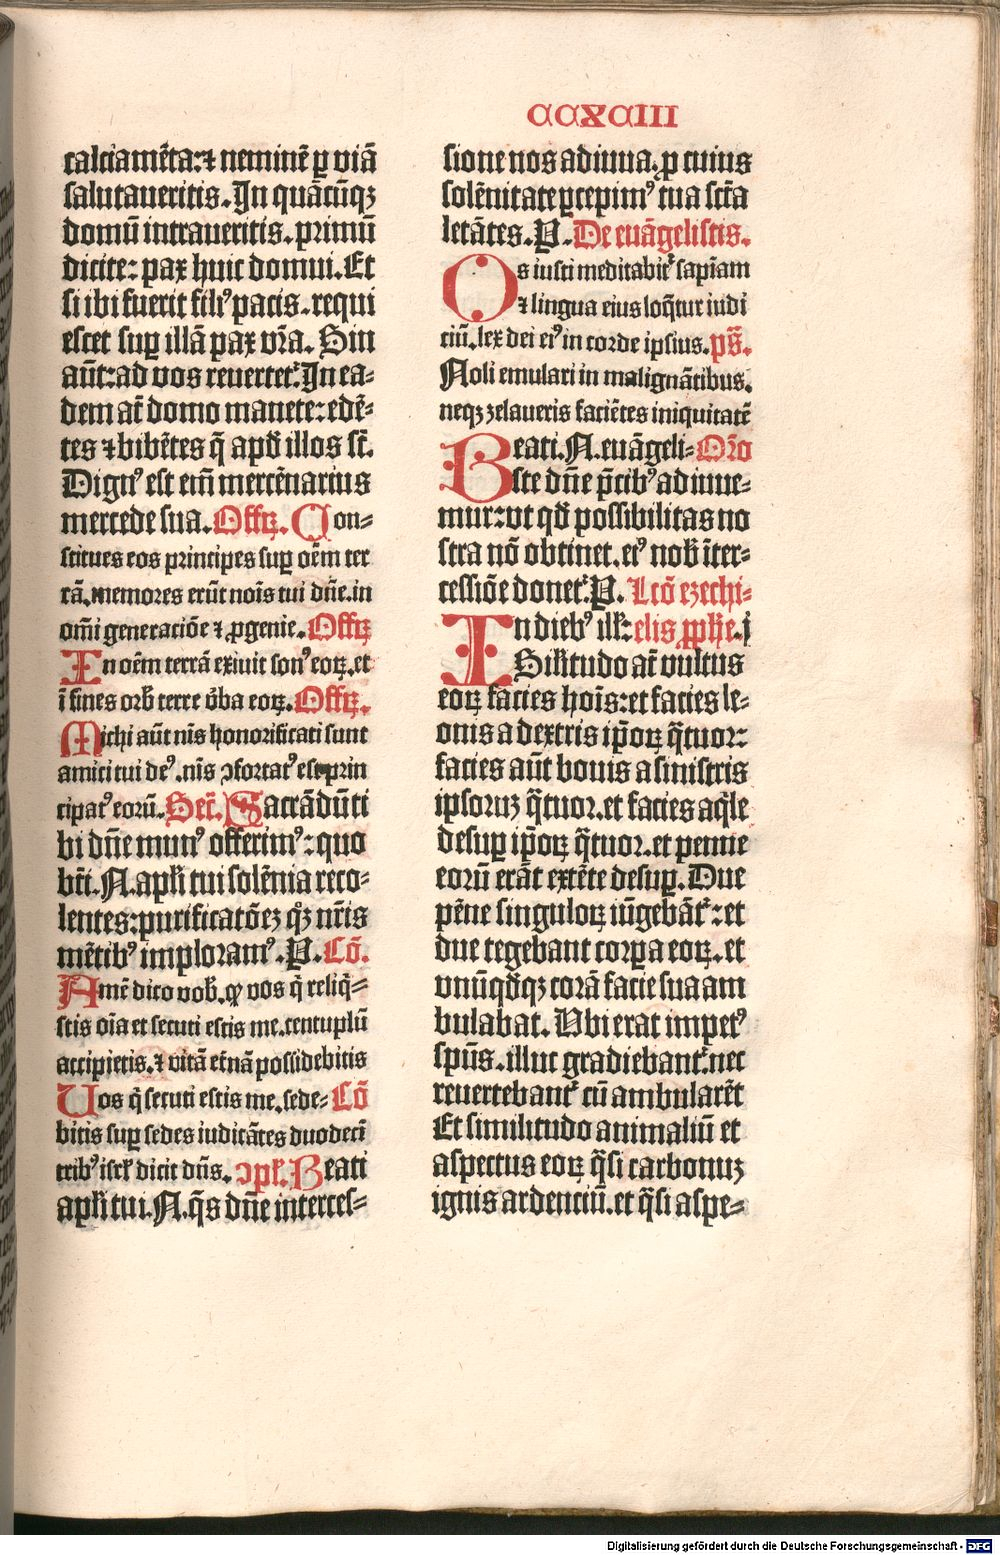 CCXCIII
calciamēta: ⁊ neminē ꝑ viā
salutaueritis. In quācūqꝫ
domū intraueritis. primū
dicite: pax huic domui. Et
si ibi fuerit filiꝰ pacis. requi
escet suꝑ illā pax vr̄a. Sin
aūt: ad vos reuertet᷑. In ea-
dem at̄ domo manete: edē-
tes ⁊ bibētes q̄ apd̄ illos st̄.
Dignꝰ est em̄ mercēnarius
mercede sua. Offꝝ. Con-
stitues eos principes suꝑ oēm ter
rā. memores erūt nois̄ tui dn̄e. in
om̄i generaciōe ⁊ ꝓgenie. Offꝝ
In oēm terrā exiuit sonꝰ eoꝝ. et
ī fines orb̄ terre v̄ba eoꝝ. Offꝝ.
Michi aūt nīs honorificati sunt
amici tui deꝰ. nīs ↄfortatꝰ est prin
cipatꝰ eorū. Secr̄. Sacrādū ti
bi dn̄e munꝰ offerimꝰ: quo
bt̄i. N. apl̄i tui solēnia reco-
lentes: purificatōeꝫ qꝫ̄ nr̄is
mētibꝰ imploramꝰ. P. Cō.
Amē dico vob̄. ꝙ vos q̄ reliq̄-
stis oīa et secuti estis me. centuplū
accipietis. ⁊ vitā et̄nā possidebitis
Vos q̄ secuti estis me. sede- Cō
bitis suꝑ sedes iudicātes duodecī
tribꝰ isrl̄ dicit dn̄s. ↄpl̄. Beati
apl̄i tui. N. q̄s dn̄e interces-
sione nos adiuua. ꝓ cuius
solēnitate ꝑcepimꝰ tua sct̄a
letātes. P. De euāgelistis.
Os iusti meditabit᷑ sapīam
⁊ lingua eius loq̄tur iudi
ciū. lex dei eiꝰ in corde ipsius. ps̄.
Noli emulari in malignātibus.
neqꝫ zelaueris faciētes iniquitatē
Beati. N. euāgeli- Or̄o
ste dn̄e p̄cibꝰ adiuue-
mur: vt qd̄ possibilitas no
stra nō obtinet. eiꝰ nob̄ īter-
cessiōe donet᷑. P. Lcō ezechi-
In diebꝰ ill̄: elis ꝓph̄e. j
Sil̄itudo at̄ vultus
eoꝝ facies hoīs: et facies le-
onis a dextris ip̄oꝝ q̄tuor:
facies aūt bouis a sinistris
ipsoruꝫ q̄tuor. et facies aq̄le
desuꝑ ip̄oꝝ q̄tuor. et penne
eorū erāt extēte desuꝑ. Due
pēne singuloꝝ iūgebāt᷑: et
due tegebant corꝑa eoꝝ. et
vnūqd̄qꝫ corā facie sua am
bulabat. Vbi erat impetꝰ
spūs. illuc gradiebant᷑. nec
reuertebant᷑ cū ambularēt
Et similitudo animaliū et
aspectus eoꝝ q̄si carbonuꝫ
ignis ardenciū. et q̄si aspe-
Digitalisierung gefördert durch die Deutsche Forschungsgemeinschaft - DFG